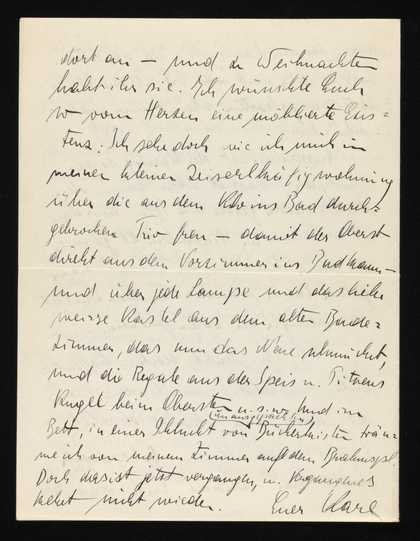 dort an – und zu Weihnachten
habt ihr sie. Ich wünschte Euch
so vom Herzen eine möblierte Exis=
tenz. Ich sehe doch wie ich mich in
meiner kleinen Zeiserlkäfigwohnung
über die aus dem Klo ins Bad durch=
gebrochen Tür freu – damit der Oberst
direkt aus dem Vorzimmer ins Bad kann –
und über jede Lampe und das liebe
weisse Kastel aus dem alten Bade=
zimmer, das nun das Neue schmückt,
und die Regale aus der Speis u.
Kugel beim Obersten u.s.w. Und im
(unausgepackten)
Bett, in einer Schlucht von Bücherkisten träu=
me ich von meinem Zimmer auf dem Brahmspl.
Doch das ist jetzt vergangen, u. Vergangenes
kehrt nicht wieder. Euer